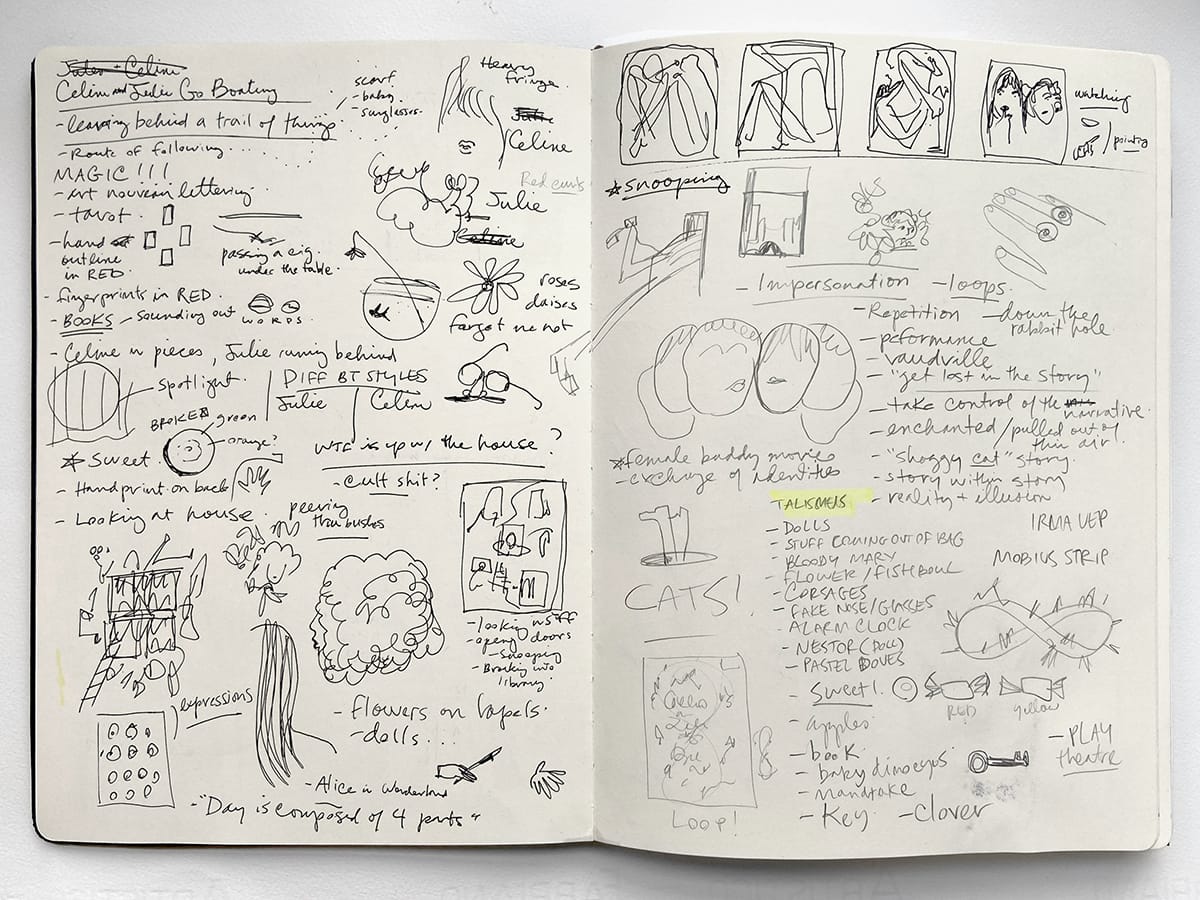 Jules + Celine
Celine and Julie Go Boating
- leaving behind a trail of things
- Route of following...
MAGIC!!!
- Art nouveau lettering
- tarot.
- hand
outline
in RED.
passing a cig.
under the table.
- fingerprints in RED.
- BOOKS - sounding out WORDS
- Celine in pieces, Julie running behind
scarf
- baby
- sunglasses.
Heavy
fringe.
Julie
Celine
Red curls
Julie
Celine
roses
daises
forget me not
spotlight.
DIFF BT STYLES
Julie
Celine
BROKEN
green
orange?
* Sweet
WTF is up w/ the house?
- Handprint on back
- cult shit?
- Looking at house
peering
thru bushes
- looking in
- opening doors
- snooping
- Breaking into
library.
expressions
- flowers on lapels.
- dolls...
- Alice in Wonderland
- "Day is composed of 4 parts"
watching
pointing
* snooping
- Impersonation
- loops.
- Repetition
- down the
rabbit hole
- performance
- vaudville
- "get lost in the story"
- take control of the narrative.
- enchanted/pulled out of
thin air.
- "shaggy cat" story.
- story within story
- reality + illusion
* female buddy movie
- exchange of identities
TALISMENS
- DOLLS
- STUFF COMING OUT OF BAG
- BLOODY MARY
- FLOWER/FISHBOWL
- CORSAGES
- FAKE NOSE/GLASSES
- ALARM CLOCK
- NESTOR (DOLL)
- PASTEL DOVES
IRMA VEP
MOBIUS STRIP
CATS!
- Sweet!
RED
yellow
- apples
- book
- baby dino eyes
- mandrake
- Key
- Clover
- PLAY
theatre
Loop!